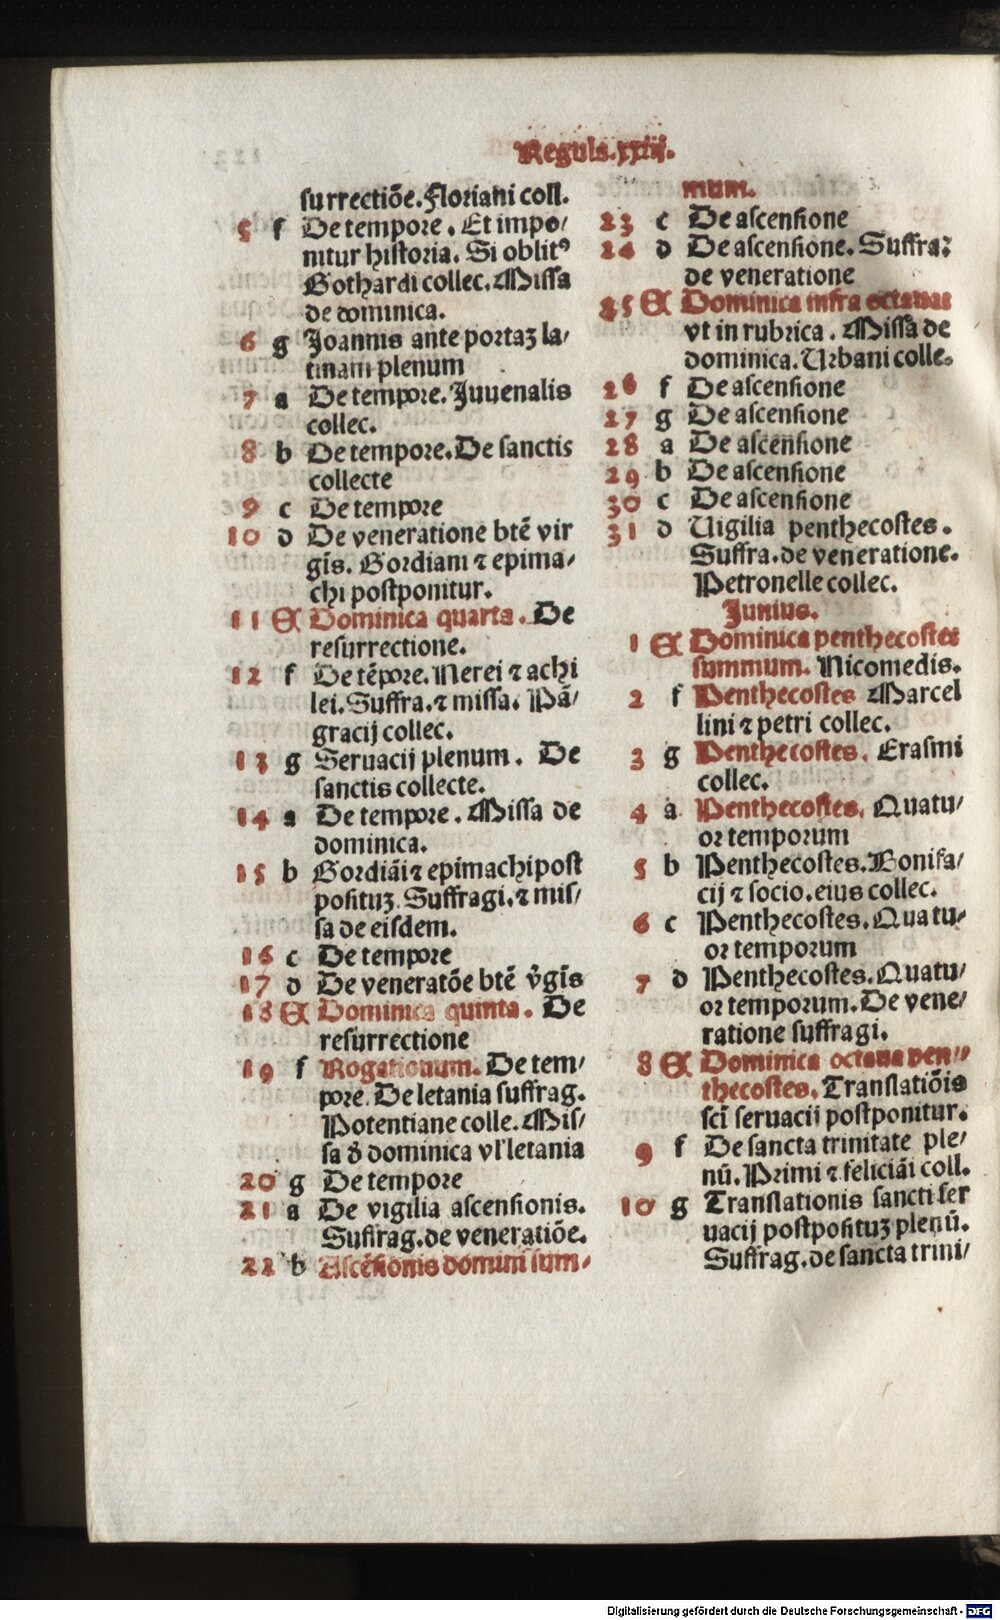 Regula.xxiij.
surrectiõe. Floriani coll.
5 f De tempore. Et impo/
nitur historia. Si oblitꝰ
Gothardi collec. Missa
de dominica.
6 g Joannis ante portaꝫ la/
tinam plenum
7 a De tempore. Juuenalis
collec.
8 b De tempore. De sanctis
collecte
9 c De tempore
10 d De veneratione btẽ vir
gĩs. Gordiani ⁊ epima/
chi postponitur.
11 A Dominica quarta. De
resurrectione.
12 f De tẽpore. Nerei ⁊ achi
lei. Suffra. ⁊ missa. Pã/
gracij collec.
13 g Seruacij plenum. De
sanctis collecte.
14 a De tempore. Missa de
dominica.
15 b Gordiãi ⁊ epimachi post
posituꝫ. Suffragi. ⁊ mis/
sa de eisdem.
16 c De tempore
17 d De veneratõe btẽ v̾gĩs
18 A Dominica quinta. De
resurrectione
19 f Rogationum. De tem/
pore. De letania suffrag.
Potentiane colle. Mis/
sa d̾ dominica vl' letania
20 g De tempore
21 a De vigilia ascensionis.
Suffrag. de veneratiõe.
22 b Ascẽsionis domini sum/
mum.
23 c De ascensione
24 d De ascensione. Suffra⁊
de veneratione
25 A Dominica infra octauas
vt in rubrica. Missa de
dominica. Urbani colle.
26 f De ascensione
27 g De ascensione
28 a De ascensione
29 b De ascensione
30 c De ascensione
31 d Uigilia penthecostes.
Suffra. de veneratione.
Petronelle collec.
Junius.
1 A Dominica penthecostes
summum. Nicomedis.
2 f Penthecostes Marcel
lini ⁊ petri collec.
3 g Penthecostes. Erasmi
collec.
4 a Penthecostes. Quatu/
or temporum
5 b Penthecostes. Bonifa/
cij ⁊ socio. eius collec.
6 c Penthecostes. Quatu/
or temporum
7 d Penthecostes. Quatu/
or temporum. De vene/
ratione suffragi.
8 A Dominica octaua pen/
thecostes. Translatiõis
scĩ seruacii postponitur.
9 f De sancta trinitate ple/
nũ. Primi ⁊ feliciãi coll.
10 g Translationis sancti ser
uacij postposituꝫ plenũ.
Suffrag. de sancta trini/
Digitalisierung gefördert durch die Deutsche Forschungsgemeinschaft - DFG